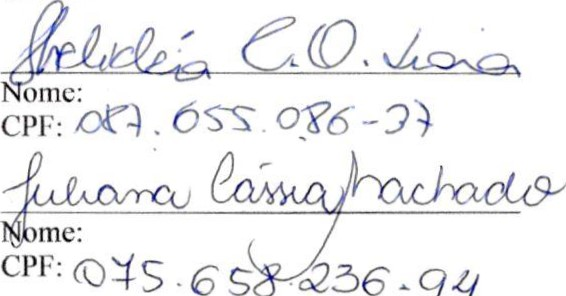 Shelidéia C. O. Maia
Nome:
CPF: 087.655.086-37
Juliana Cássia Machado
Nome:
CPF: 075.658.236.94